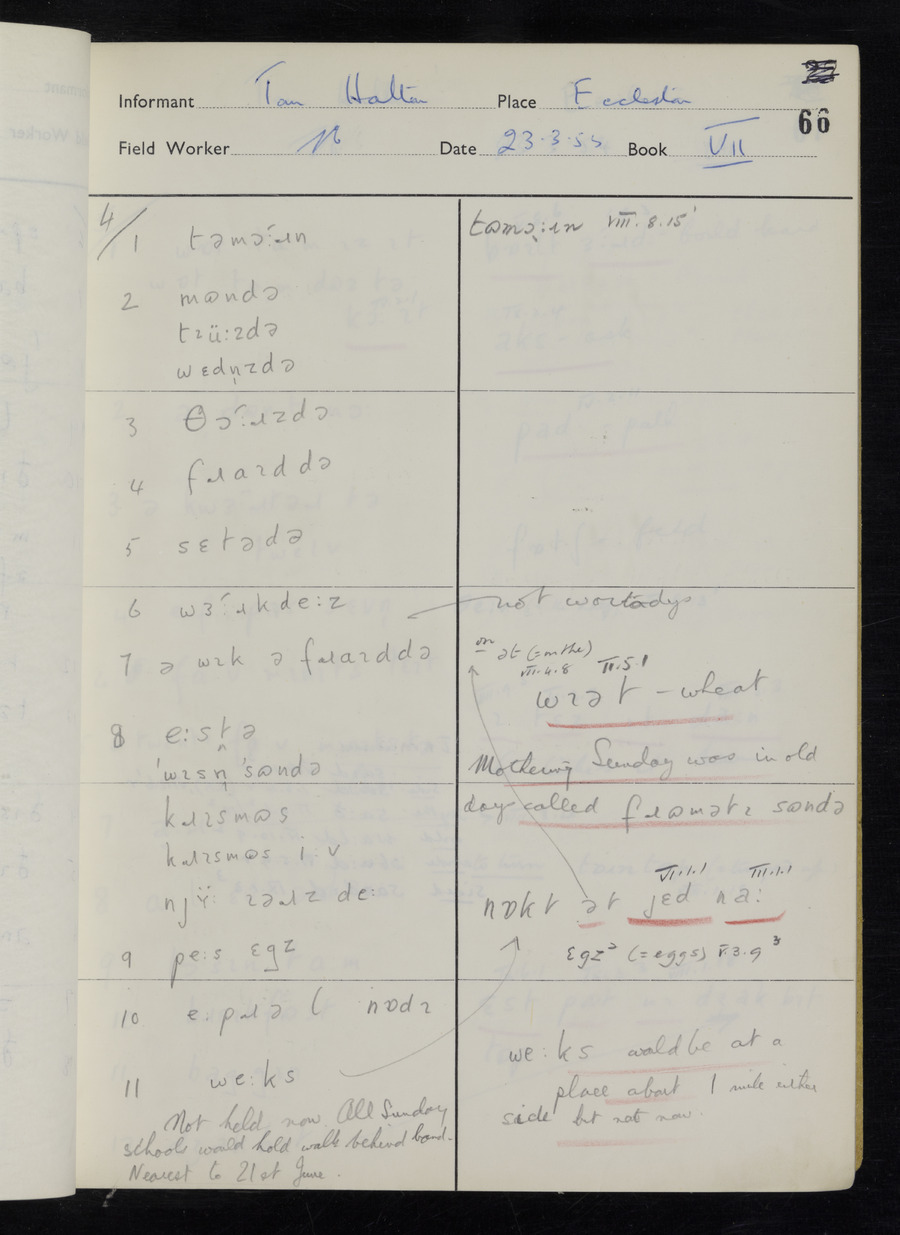 Informant Tom Halton Place Eccleston
66
Field Worker Date 23·3·55 Book VII
4/1 təmɔ:ɹɪn
2 mɷndə
tɪü:zdə
wɛdn̩zdə
3 θɔ:ɹzdə
4 fɹaɪdə
5 sɛtədə
6 wɜ:ɹkde:z
7 ə wɪk ə fɹaɪddə
8 e:stə
ˈwɪsn̩ ˈsɷndə
kɹɪsmɷs
kɹɪsmɷs i:v
njÿ: ɪəɹz de:
9 pe:s ɛgz
10 e:pɹə
nɒdɪ
11 we:ks
Not held now. All Sunday
schools would hold walk behind band.
Nearest to 21st June.
tɷmɔ:ɹɪn VIII.8.15
not
on ət (=on the)
VII.4.8 II.5.1
wɪət – wheat
Mothering Sunday was in old
days called fɹɷmətɪ sɷndə
VI.1.1 III.1.1
nɒkt ət jɛd na:
ɛgz² (=eggs) V.3.9³
we:ks would be at a
place about 1 mile either
side but not now.